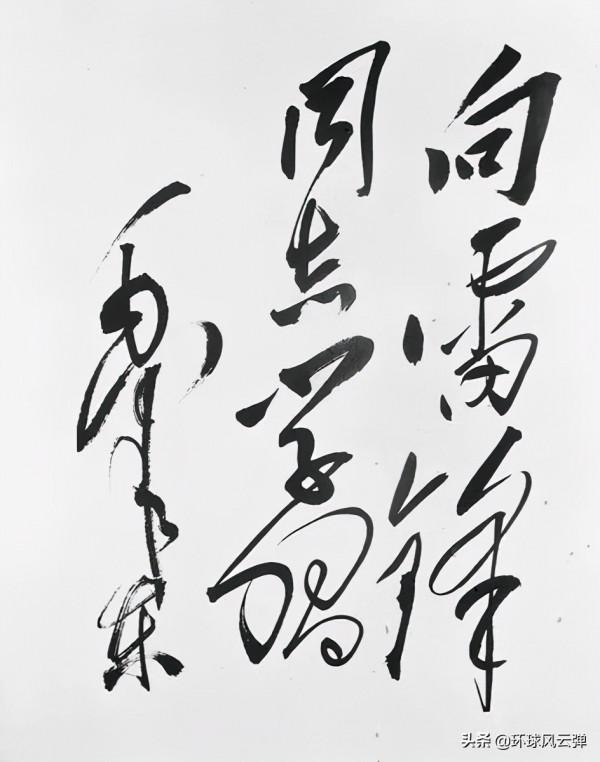 向雷锋
同志学习
毛泽东
头条 @环球风云弹